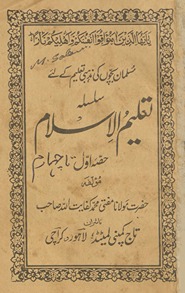 یا ایھا الذین امنوا قوا انفسکم واھلیکم نارا
مسلمان بچوں کی مذہبی تعلیم کے لئے
سلسلہ
تعلیم الاسلام
حصہ اول تا چہارم
مؤلفہ
حضرت مولانا مفتی محمد کفایت اللہ صاحب
ناشران
تاج کمپنی لمیٹڈ لاہور، کراچی